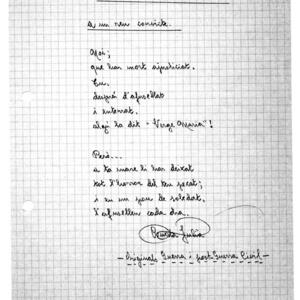 a un neu convicte.
Noi;
que han mort ajusticiat.
Tu.
després d'afusellat
i enterrat.
algú ha dit - "Verge Maria"!
Però...
a ta mare li han deixat
tot l'horror del teu pecat;
i en un pou de soledat.
l'afusellen cada dia.
Julià
- Originals Guerra i post Guerra Civil -